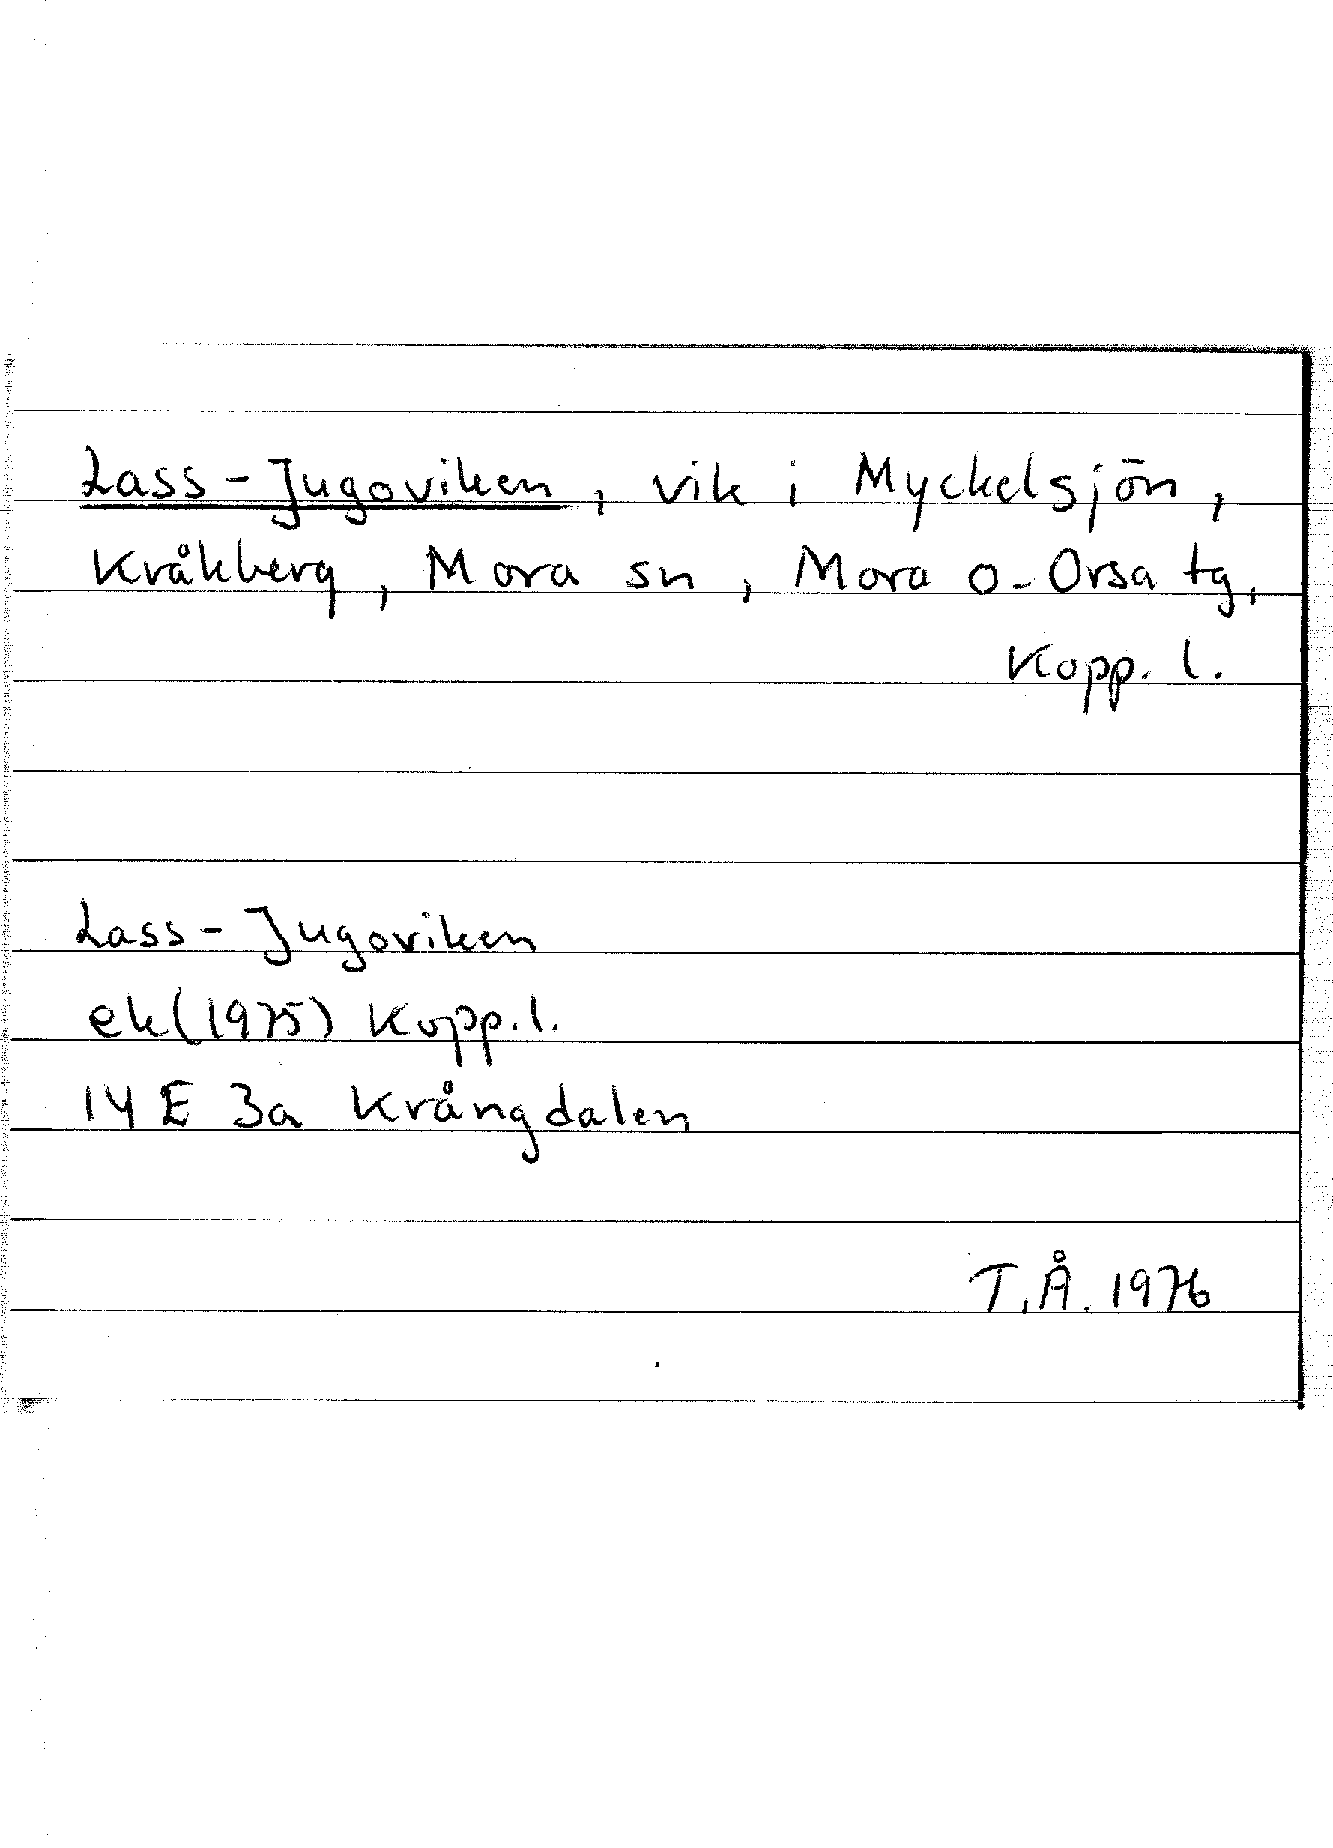 Lass-Jugoviken, vik i Myckelsjön,
Kråkberg, Mora sn, Mora o-Orsa tg,
Kopp. l.
Lass-Jugoviken
ek (1975) Kopp. l.
14 E 3a Krångdalen
T.Å. 1976